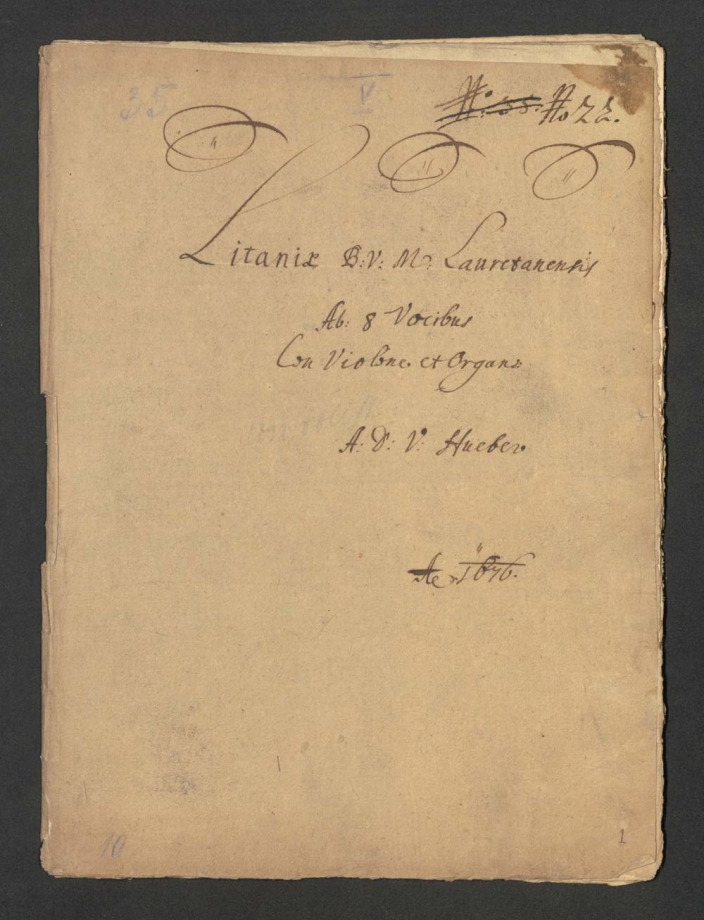 35
V
No: 35. No 22.
Litaniæ B: V: M: Lauretanensis
Ab: 8 Vocibus
Con Violone et Organo
A: D: V: Hueber
1676.
1
10